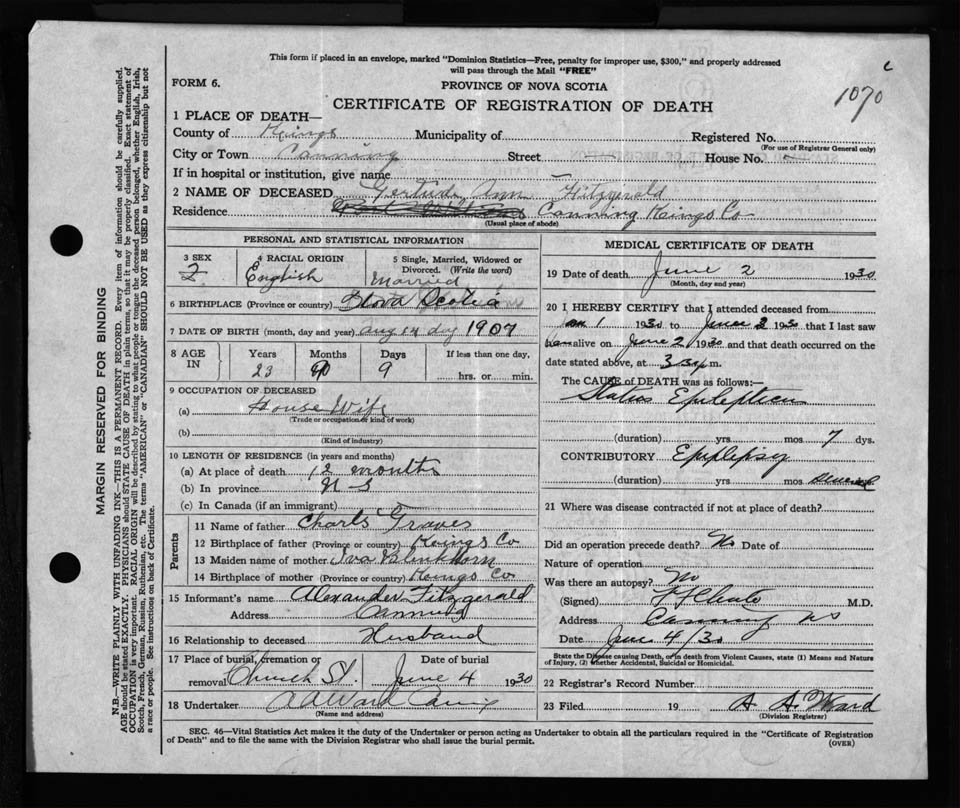 This form if placed in an envelope, marked "Dominion Statistics—Free, penalty for improper use, $300," and properly addressed
will pass through the Mail "FREE"
c
1070
FORM 6.
PROVINCE OF NOVA SCOTIA
CERTIFICATE OF REGISTRATION OF DEATH
1 PLACE OF DEATH—
County of Kings Municipality of Registered No.
(For use of Registrar General only)
City or Town Canning Street — House No. —
If in hospital or institution, give name —
2 NAME OF DECEASED Gertrude Ann Fitzgerald
Residence Canning Kings Co
(Usual place of abode)
PERSONAL AND STATISTICAL INFORMATION
3 SEX 4 RACIAL ORIGIN 5 Single, Married, Widowed or
Divorced. (Write the word)
English Married
6 BIRTHPLACE (Province or country) Nova Scotia
7 DATE OF BIRTH (month, day and year) Aug 14 dy 1907
8 AGE IN Years Months Days If less than one day,
23 9 hrs. or min.
9 OCCUPATION OF DECEASED
(a) House Wife
(Trade or occupation or kind of work)
(b)
(Kind of industry)
10 LENGTH OF RESIDENCE (in years and months)
(a) At place of death 12 months
(b) In province N S
(c) In Canada (if an immigrant)
Parents
11 Name of father Charls Graves
12 Birthplace of father (Province or country) Kings Co
13 Maiden name of mother Iva Blinkhorn
14 Birthplace of mother (Province or country) Kings Co
15 Informant's name Alexander Fitzgerald
Address Canning
16 Relationship to deceased Husband
17 Place of burial, cremation or Date of burial
removal Church St. June 4 1930
18 Undertaker A A Ward
(Name and address)
MEDICAL CERTIFICATE OF DEATH
19 Date of death June 2 1930
(Month, day and year)
20 I HEREBY CERTIFY that I attended deceased from
1 1930 to June 2 1930 that I last saw
h alive on June 2 1930 and that death occurred on the
date stated above, at 3 m.
The CAUSE of DEATH was as follows:—
Status Epilepticus
(duration) yrs mos 7 dys.
CONTRIBUTORY Epilepsy
(duration) yrs mos
21 Where was disease contracted if not at place of death?
Did an operation precede death? No Date of
Nature of operation
Was there an autopsy? No
(Signed) M.D.
Address Canning NS
Date June 4/30
State the Disease causing Death, or in death from Violent Causes, state (1) Means and Nature
of Injury, (2) whether Accidental, Suicidal or Homicidal.
22 Registrar's Record Number
23 Filed 19 A. A. Ward
(Division Registrar)
SEC. 46—Vital Statistics Act makes it the duty of the Undertaker or person acting as Undertaker to obtain all the particulars required in the "Certificate of Registration
of Death" and to file the same with the Division Registrar who shall issue the burial permit.
(OVER)
MARGIN RESERVED FOR BINDING
N.B.—WRITE PLAINLY WITH UNFADING INK—THIS IS A PERMANENT RECORD. Every item of information should be carefully supplied.
AGE should be stated EXACTLY. PHYSICIANS should STATE CAUSE OF DEATH in plain terms, so that it may be properly classified. Exact statement of
OCCUPATION is very important. RACIAL ORIGIN will be described by stating to what people or tongue the deceased person belonged, whether English, Irish,
Scotch, French, German, Russian, Ruthenian, etc. The terms "AMERICAN" or "CANADIAN" SHOULD NOT BE USED as they express citizenship but not
a race or people. See instructions on back of Certificate.